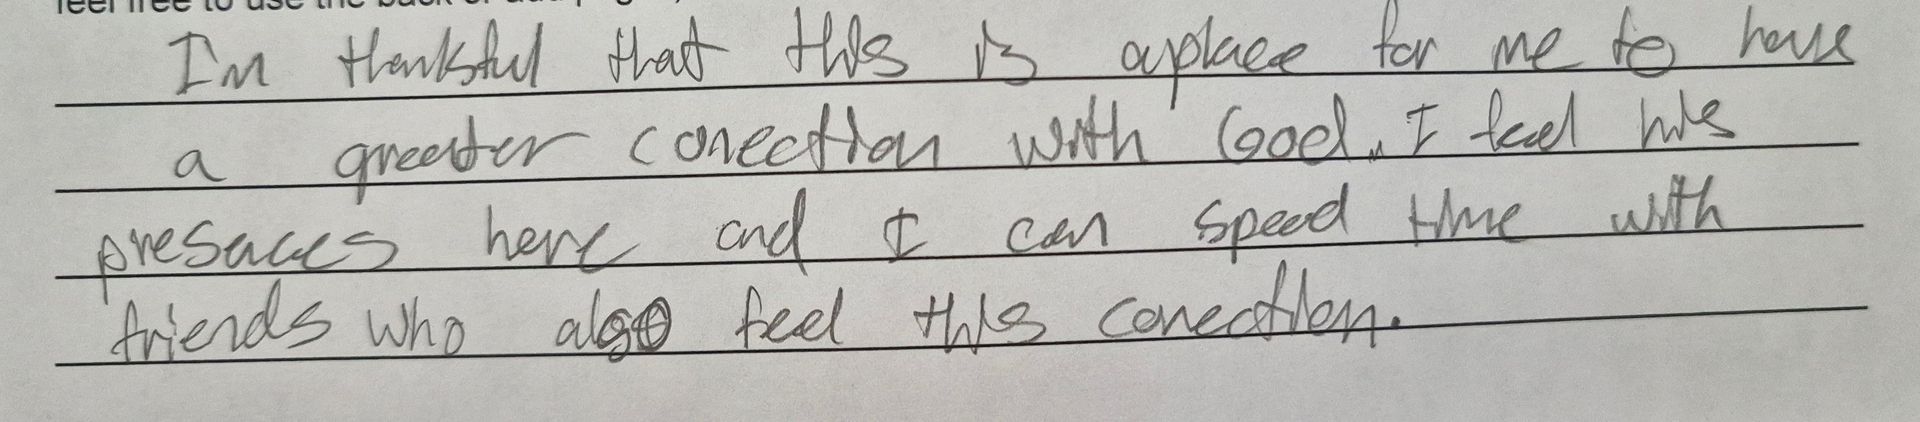 feel free to use the back or add pag
I'm thankful that this is a place for me to have
a greater conection with God. I feel his
presaces here and I can spend time with
friends who also feel this conection.